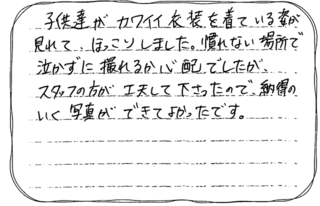 子供達が カワイイ 衣装を着ている姿が
見れて、ほっこりしました。慣れない場所で
泣かずに 撮れるか心配でしたが、
スタッフの方が 工夫して下さったので、納得の
いく 写真が できてよかったです。